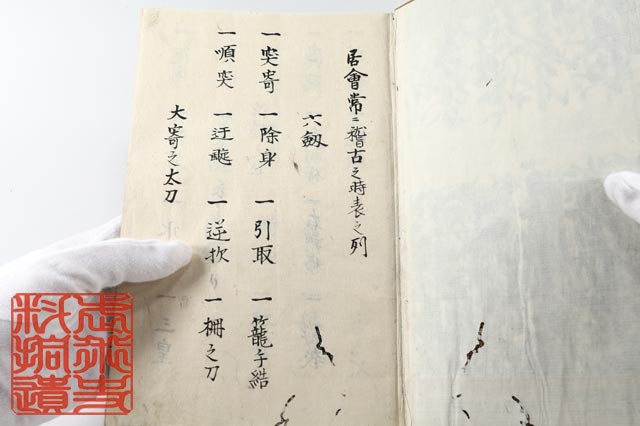 居會常ニ稽古之時表之列
六劔
一突寄 一除身 一引取 一籠手結
一順突 一迂 一逆 一柵之刀
大寄之太刀